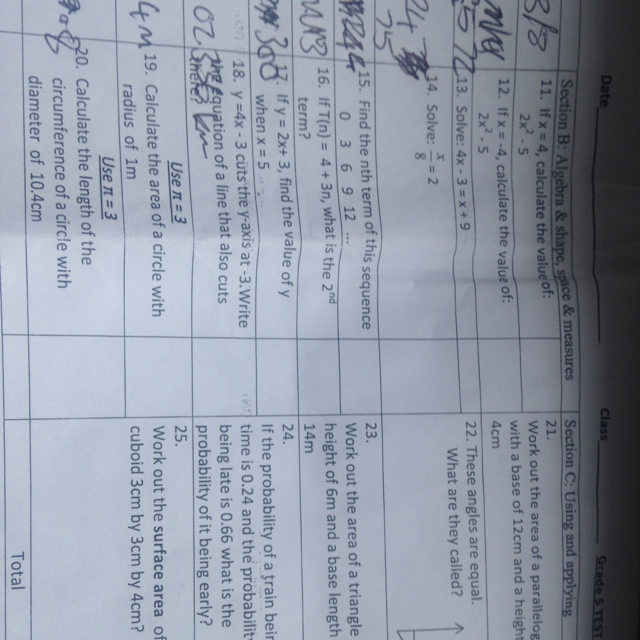 Date
Class
Grade 5 TEST
Section B: Algebra & shape, space & measures
11. If x = 4, calculate the value of:
2x² - 5
12. If x = -4, calculate the value of:
2x² - 5
13. Solve: 4x - 3 = x + 9
14. Solve: x/8 = 2
15. Find the nth term of this sequence
0 3 6 9 12 ...
16. If T(n) = 4 + 3n, what is the 2nd
term?
If y = 2x + 3, find the value of y
when x = 5
18. y = 4x - 3 cuts the y-axis at -3. Write
the equation of a line that also cuts
Use π = 3
19. Calculate the area of a circle with
radius of 1m
Use π = 3
20. Calculate the length of the
circumference of a circle with
diameter of 10.4cm
Section C: Using and applying
21.
Work out the area of a parallelo
with a base of 12cm and a height
4cm
22. These angles are equal.
What are they called?
23.
Work out the area of a triangle
height of 6m and a base length
14m
24.
If the probability of a train bein
time is 0.24 and the probabilit
being late is 0.66 what is the
probability of it being early?
25.
Work out the surface area of
cuboid 3cm by 3cm by 4cm?
Total
8/8
24
25